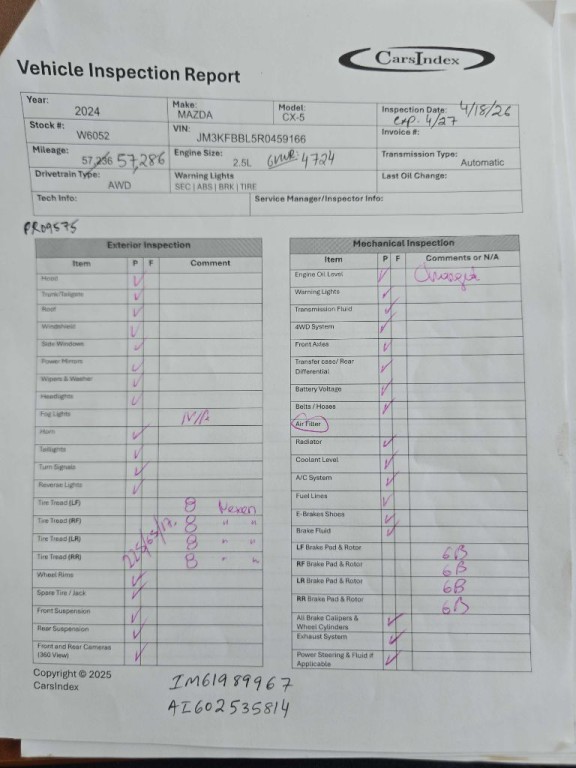 CarsIndex
Vehicle Inspection Report
Year: 2024 Make: MAZDA Model: CX-5 Inspection Date: 4/18/26
exp. 4/27
Stock #: W6052 VIN: JM3KFBBL5R0459166 Invoice #:
Mileage: 57,236 57,286 Engine Size: 2.5L GVWR: 4724 Transmission Type: Automatic
Drivetrain Type: AWD Warning Lights SEC | ABS | BRK | TIRE Last Oil Change:
Tech Info: Service Manager/Inspector Info:
PR09575
Exterior Inspection
Item P F Comment
Hood ✓
Trunk/Tailgate ✓
Roof ✓
Windshield ✓
Side Windows ✓
Power Mirrors ✓
Wipers & Washer ✓
Headlights ✓
Fog Lights N/A
Horn ✓
Taillights ✓
Turn Signals ✓
Reverse Lights ✓
Tire Tread (LF) 8 Nexen
Tire Tread (RF) 8 " "
Tire Tread (LR) 8 " "
Tire Tread (RR) 8 " "
225/65/17.
Wheel Rims ✓
Spare Tire / Jack ✓
Front Suspension ✓
Rear Suspension ✓
Front and Rear Cameras (360 View) ✓
Mechanical Inspection
Item P F Comments or N/A
Engine Oil Level ✓
Warning Lights ✓
Transmission Fluid ✓
4WD System ✓
Front Axles ✓
Transfer case/ Rear
Differential ✓
Battery Voltage ✓
Belts / Hoses ✓
Air Filter
Radiator ✓
Coolant Level ✓
A/C System ✓
Fuel Lines ✓
E-Brakes Shoes ✓
Brake Fluid ✓
LF Brake Pad & Rotor 6B
RF Brake Pad & Rotor 6B
LR Brake Pad & Rotor 6B
RR Brake Pad & Rotor 6B
All Brake Calipers &
Wheel Cylinders ✓
Exhaust System ✓
Power Steering & Fluid if
Applicable ✓
Copyright © 2025
CarsIndex
IM61989967
AI602535814